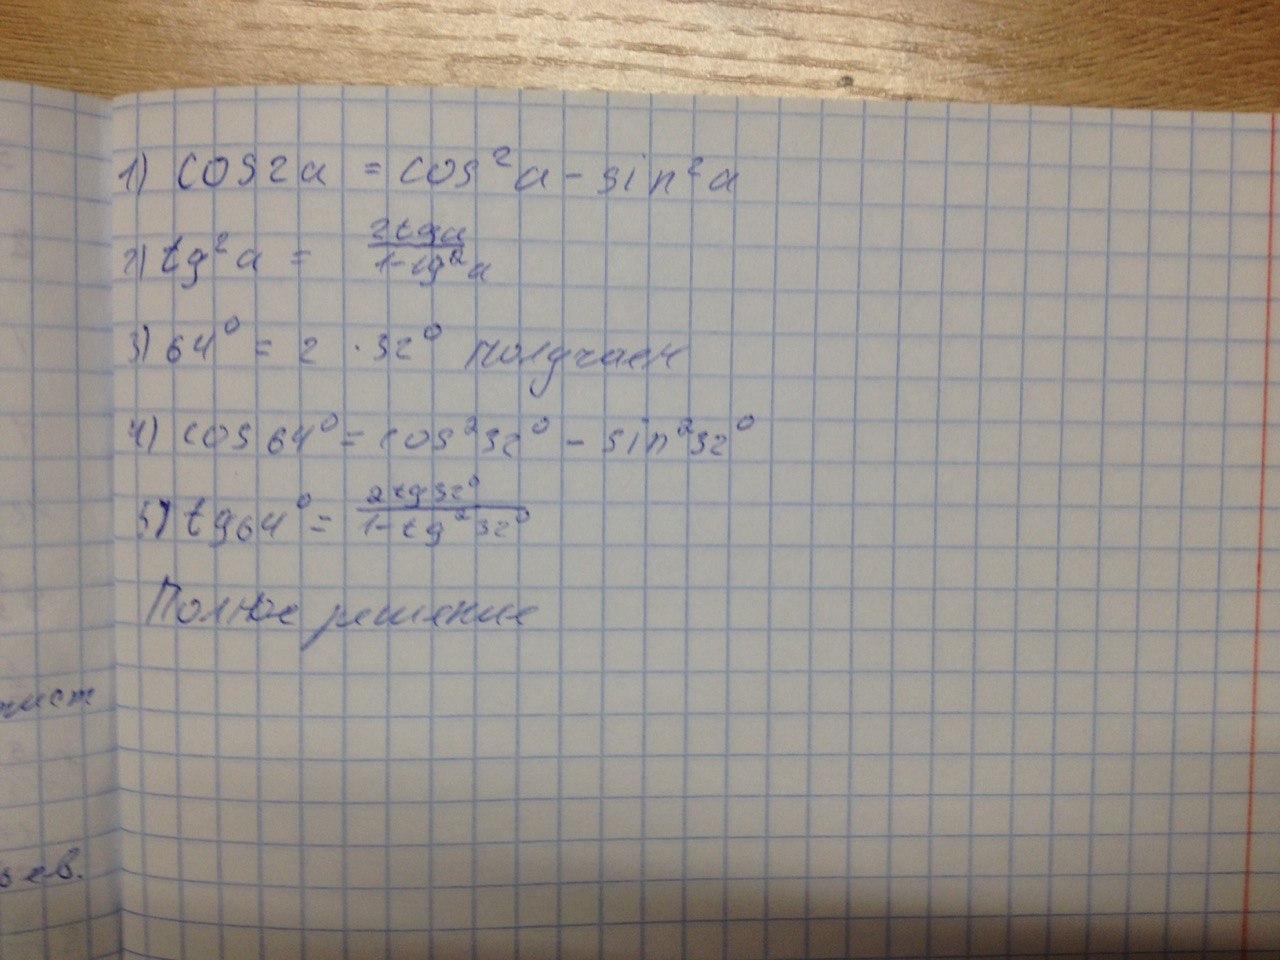 1) cos2a = cos²a - sin²a
2) tg²a = 2tga / 1-tg²a
3) 64° = 2 · 32° получаем
4) cos 64° = cos²32° - sin²32°
5) tg64° = 2tg32° / 1-tg²32°
Полное решение